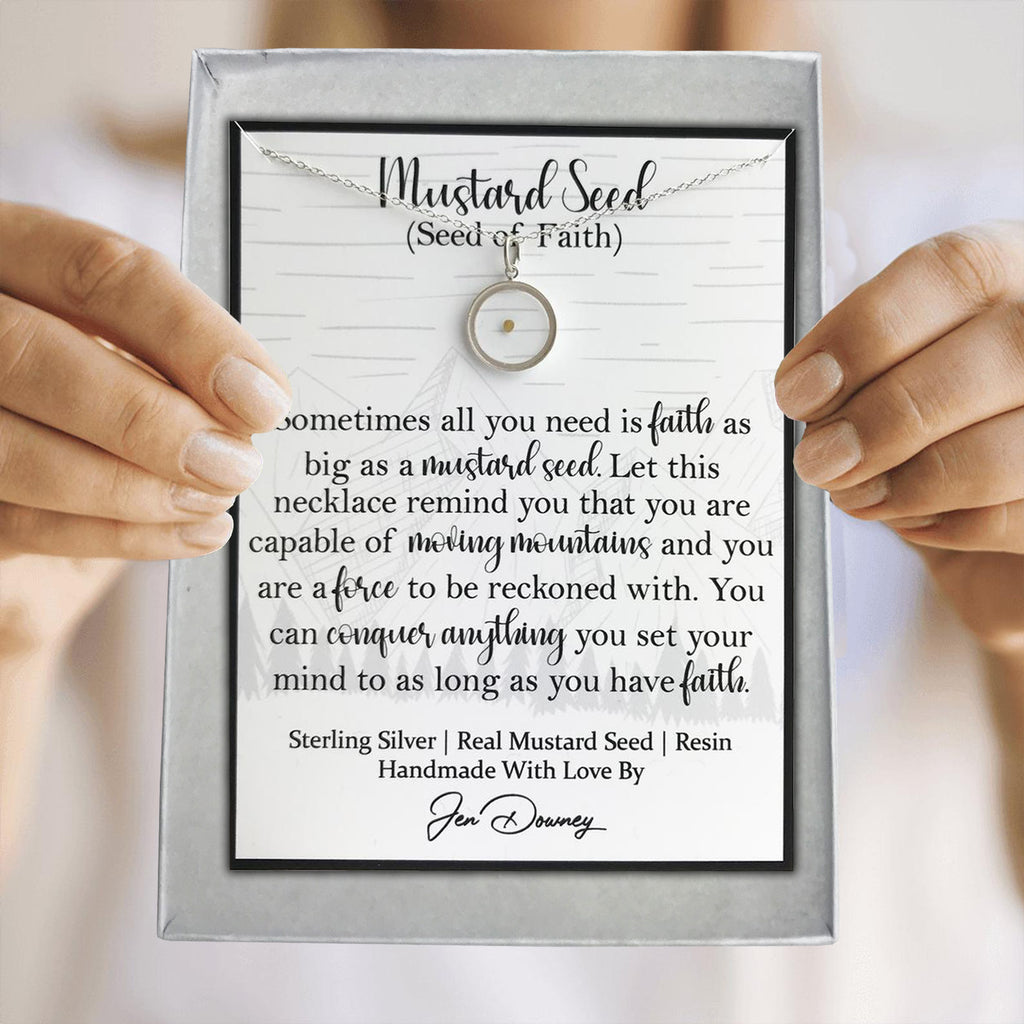 Mustard Seed
(Seed of Faith)
Sometimes all you need is faith as
big as a mustard seed. Let this
necklace remind you that you are
capable of moving mountains and you
are a force to be reckoned with. You
can conquer anything you set your
mind to as long as you have faith.
Sterling Silver | Real Mustard Seed | Resin
Handmade With Love By
Jen Downey